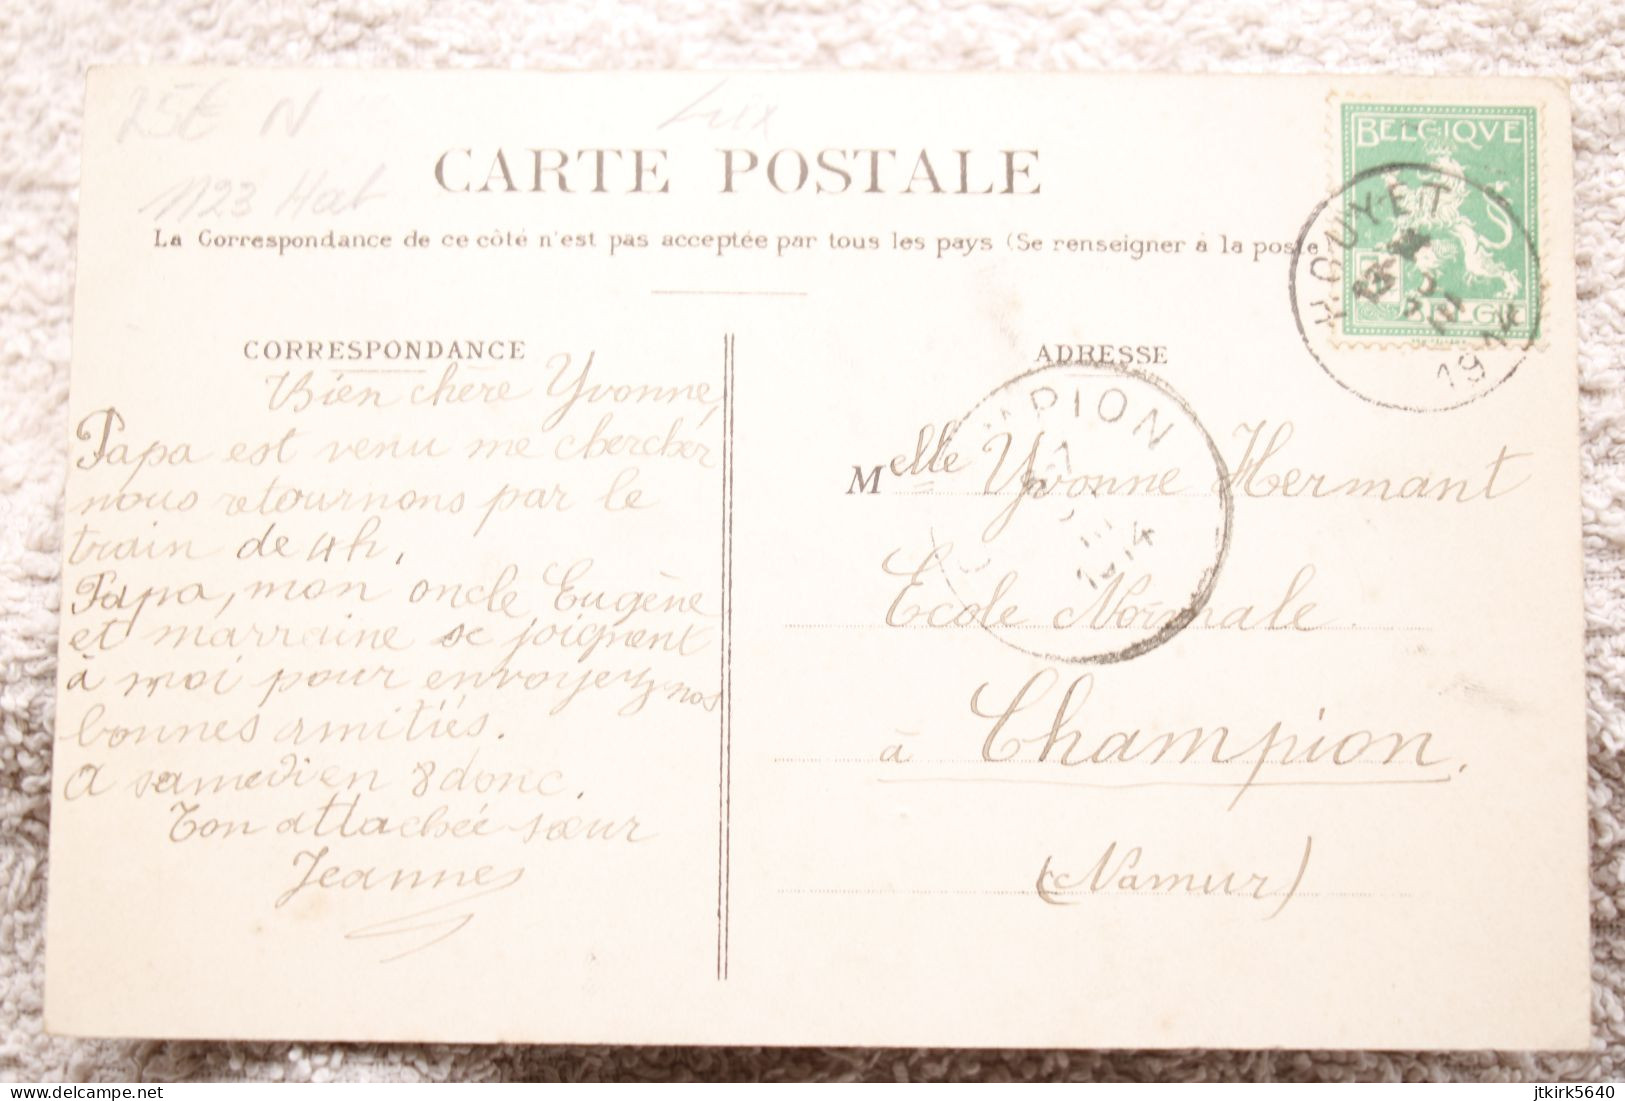 25€ N
Lux
1123 Hab
CARTE POSTALE
La Correspondance de ce côté n'est pas acceptée par tous les pays (Se renseigner à la poste
BELGIQVE
BELGIË
HOUYET
1914
CORRESPONDANCE
Bien chère Yvonne,
Papa est venu me chercher
nous retournons par le
train de 4h.
Papa, mon oncle Eugène
et marraine se joignent
à moi pour envoyez nos
bonnes amitiés.
A samedi en 8 donc.
Ton attachée sœur
Jeanne
ADRESSE
CHAMPION
1914
Melle Yvonne Hermant
Ecole Normale.
à Champion.
(Namur)
delcampe.net
jtkirk5640